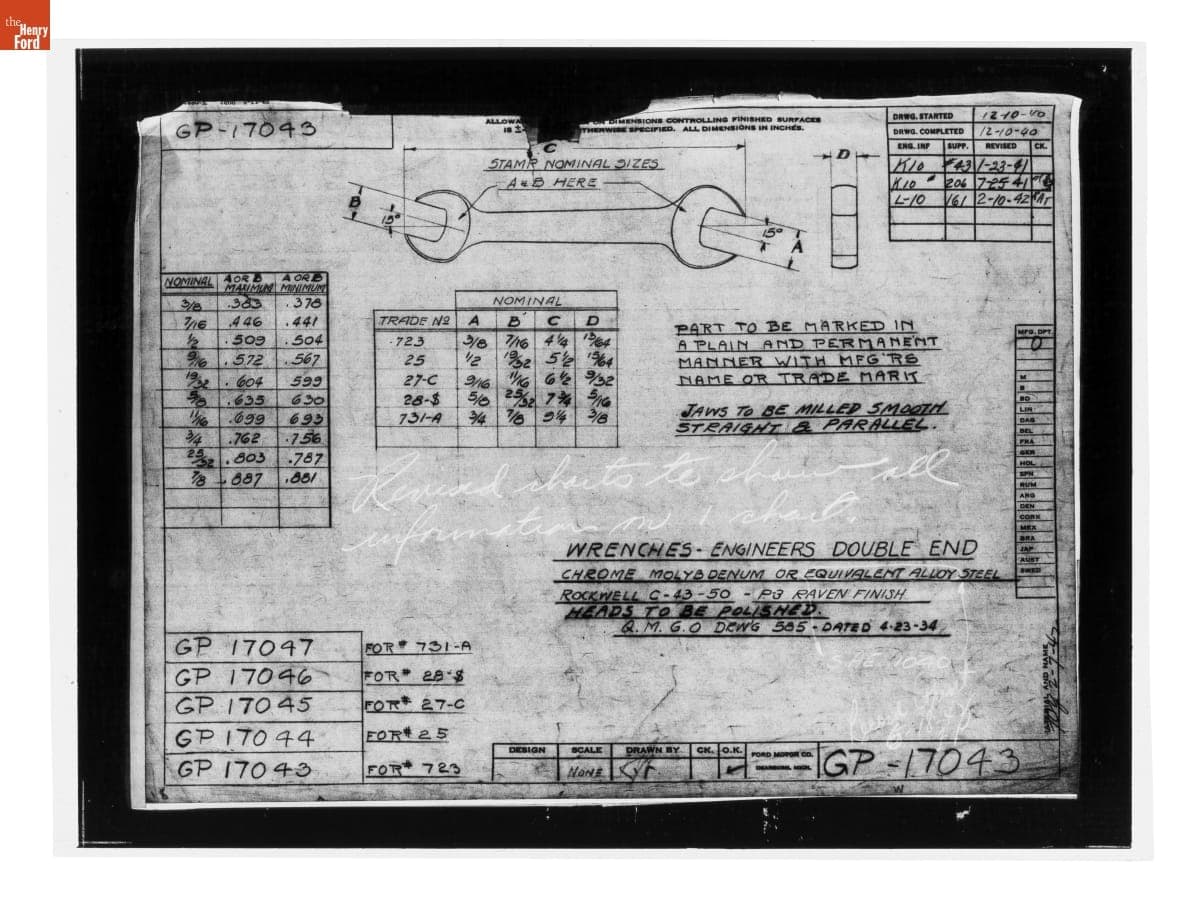 the
Henry
Ford
GP-17043
ALLOWA
DIMENSIONS CONTROLLING FINISHED SURFACES
IS ±
THERWISE SPECIFIED. ALL DIMENSIONS IN INCHES.
DRWG. STARTED 12-10-40
DRWG. COMPLETED 12-10-40
ENG. INF SUPP. REVISED CK.
K10 #43 1-23-41
K10 # 206 7-25-41
L-10 161 2-10-42
C
STAMP NOMINAL SIZES
A & B HERE
B
15°
15°
A
D
NOMINAL A OR B MAXIMUM A OR B MINIMUM
3/8 .383 .378
7/16 .446 .441
1/2 .509 .504
9/16 .572 .567
19/32 .604 599
5/8 .635 630
11/16 .699 693
3/4 .762 .756
25/32 .803 .787
7/8 .887 .881
NOMINAL
TRADE NO A B C D
723 3/8 7/16 4 1/4 13/64
25 1/2 19/32 5 1/2 15/64
27-C 9/16 11/16 6 1/2 9/32
28-S 5/8 25/32 7 3/4 5/16
731-A 3/4 7/8 9 1/4 3/8
PART TO BE MARKED IN
A PLAIN AND PERMANENT
MANNER WITH MFG'RS
NAME OR TRADE MARK
JAWS TO BE MILLED SMOOTH
STRAIGHT & PARALLEL.
MFG. DPT.
O
M
B
BO
LIN
DAG
BEL
FRA
GER
HOL
SPN
RUM
ARG
DEN
CORK
MEX
BRA
JAP
AUST
SWED
Revised charts to show all
information on 1 chart.
WRENCHES - ENGINEERS DOUBLE END
CHROME MOLYBDENUM OR EQUIVALENT ALLOY STEEL
ROCKWELL C-43-50 - P3 RAVEN FINISH
HEADS TO BE POLISHED.
Q. M. G. O DRW'G 585 - DATED 4-23-34
GP 17047 FOR # 731-A
GP 17046 FOR # 28-S
GP 17045 FOR # 27-C
GP 17044 FOR # 25
GP 17043 FOR # 723
DESIGN SCALE DRAWN BY CK. O.K.
NONE
FORD MOTOR CO.
DEARBORN, MICH.
GP-17043
W